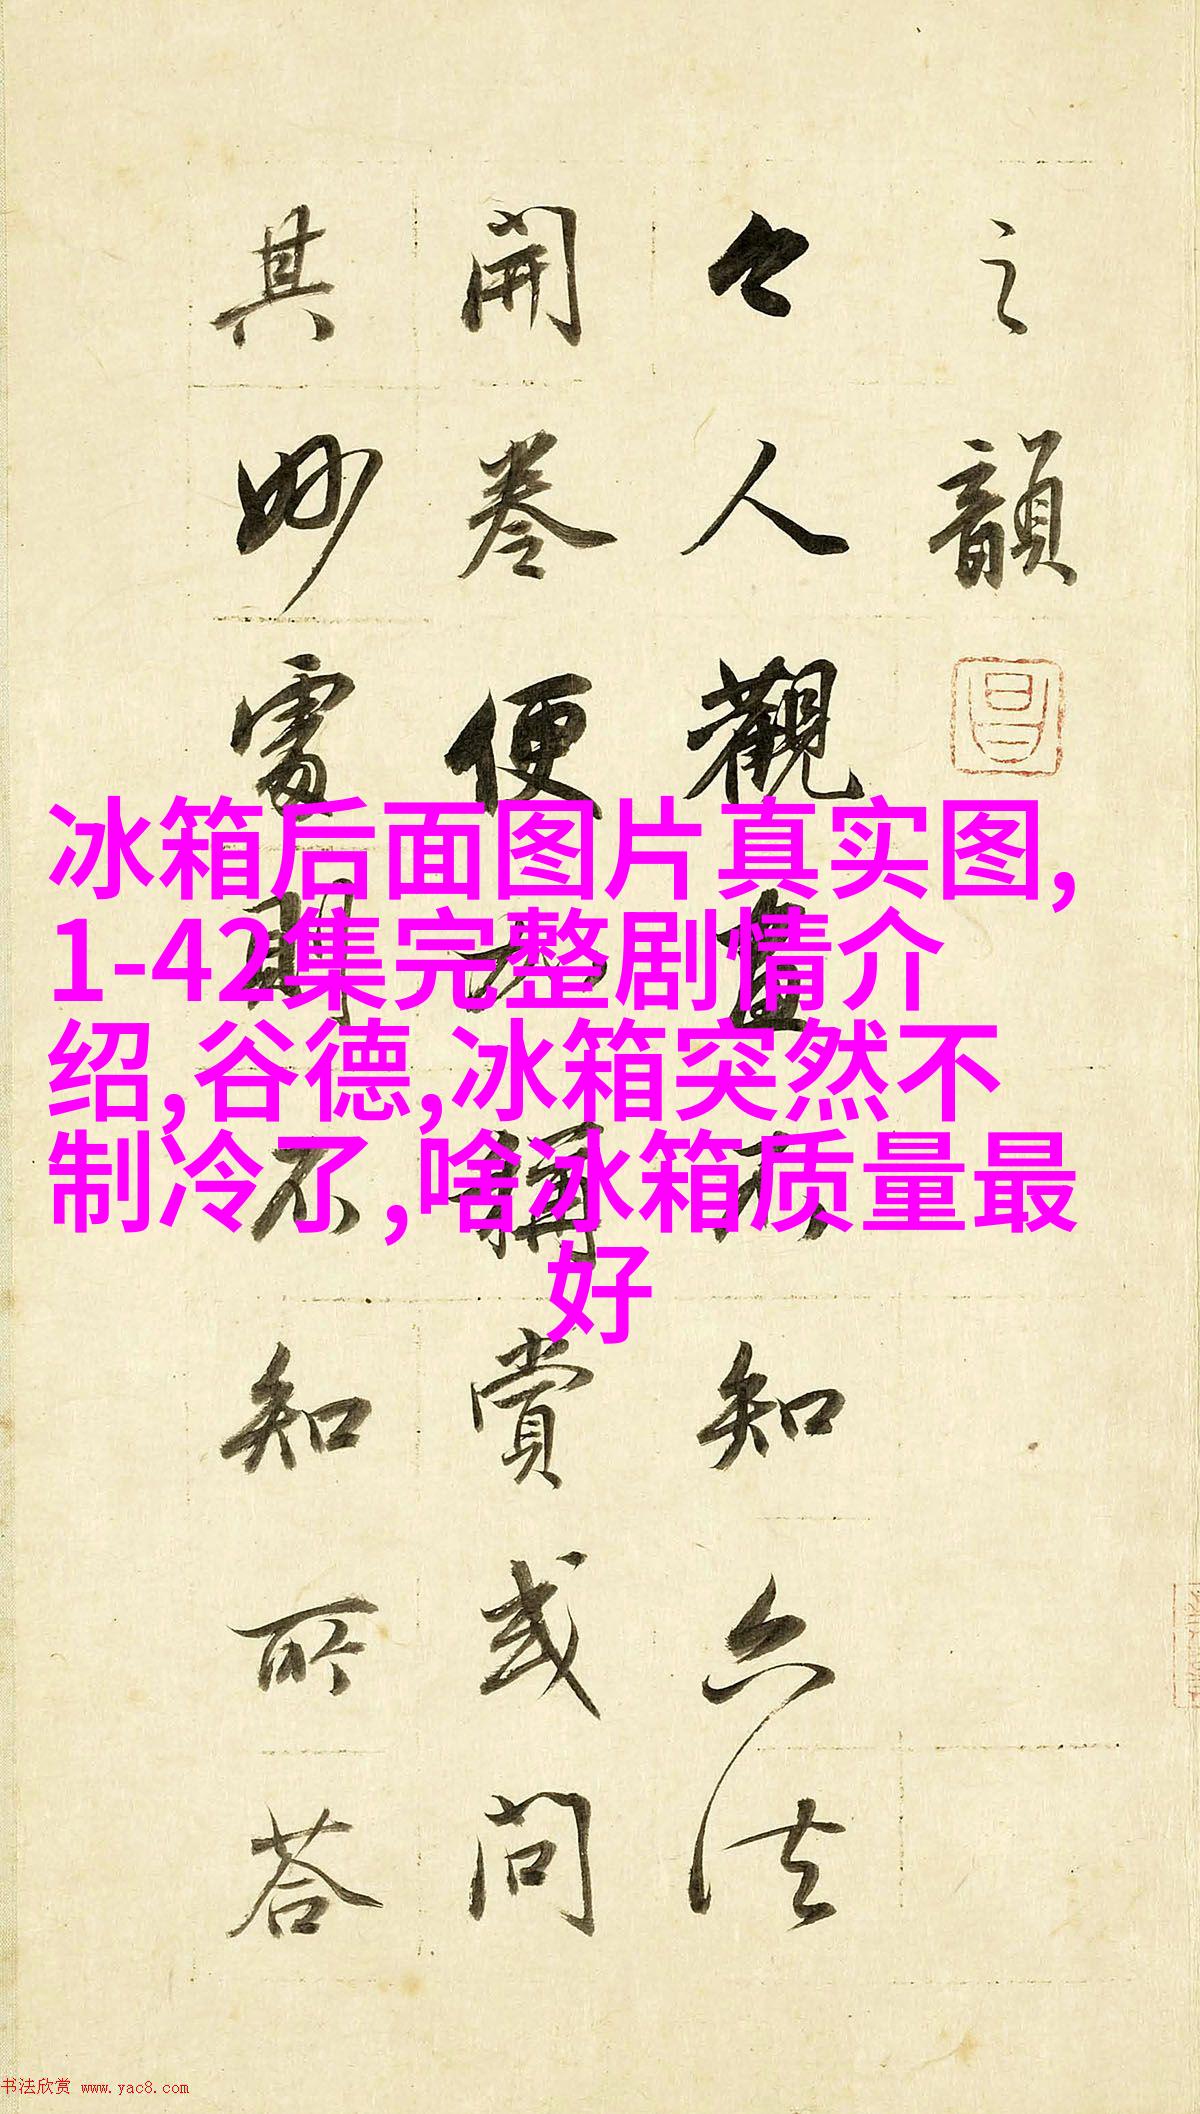 之韻
今人觀畫不知六法
開卷便加稱賞或問
其妙處則不知所荅
冰箱后面图片真实图,
1-42集完整剧情介
绍,谷德,冰箱突然不
制冷了,啥冰箱质量最
好
书法欣赏 www.yac8.com